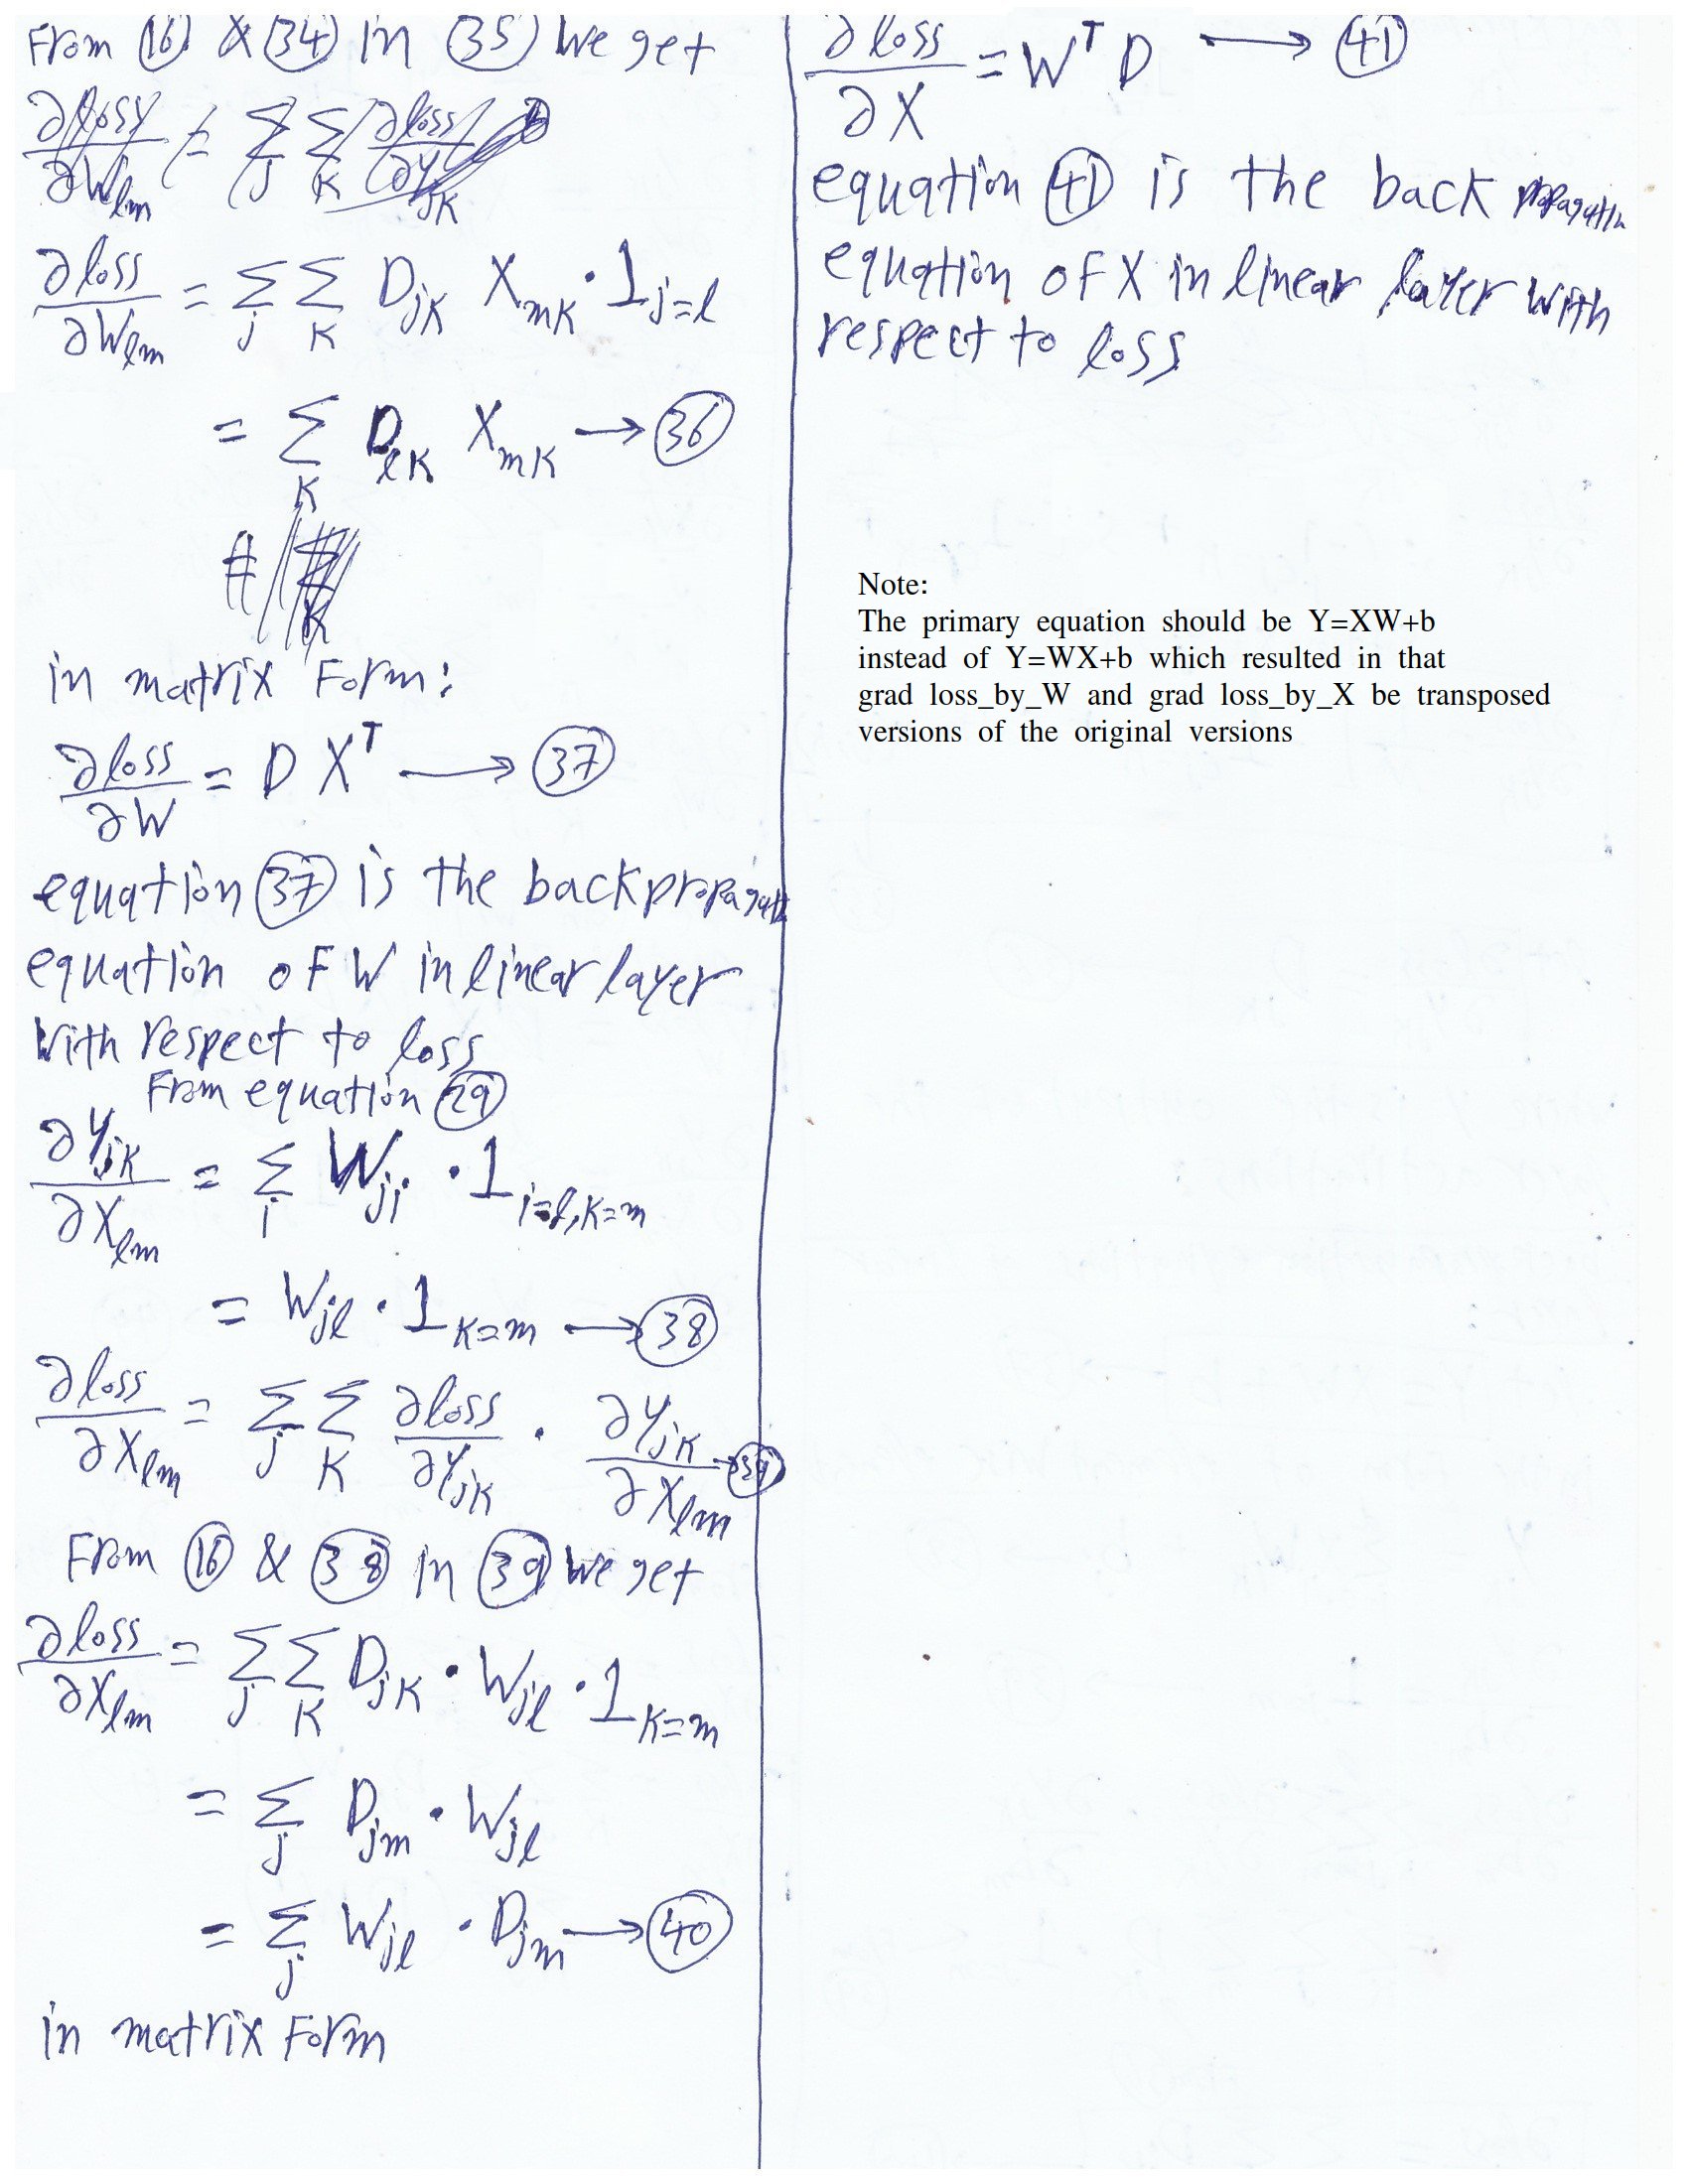 From (16) & (34) in (35) we get
∂loss/∂W_lm = Σ_j Σ_K ∂loss/∂Y_jK
∂loss/∂W_lm = Σ_j Σ_K D_jK X_mK · 1_j=l
= Σ_K D_lK X_mK → (36)
in matrix Form:
∂loss/∂W = D X^T → (37)
equation (37) is the
equation oF W in linear layer
With respect to loss
From equation (29)
∂Y_jK/∂X_lm = Σ_i W_ji · 1_i=l,K=m
= W_jl · 1_K=m → (38)
∂loss/∂X_lm = Σ_j Σ_K ∂loss/∂Y_jK · ∂Y_jK/∂X_lm → (39)
From (16) & (38) in (39) we get
∂loss/∂X_lm = Σ_j Σ_K D_jK · W_jl · 1_K=m
= Σ_j D_jm · W_jl
= Σ_j W_jl · D_jm → (40)
in matrix Form
∂loss/∂X = W^T D → (41)
equation (41) is the back
equation oF X in linear layer with
respect to loss
Note:
The primary equation should be Y=XW+b
instead of Y=WX+b which resulted in that
grad loss_by_W and grad loss_by_X be transposed
versions of the original versions